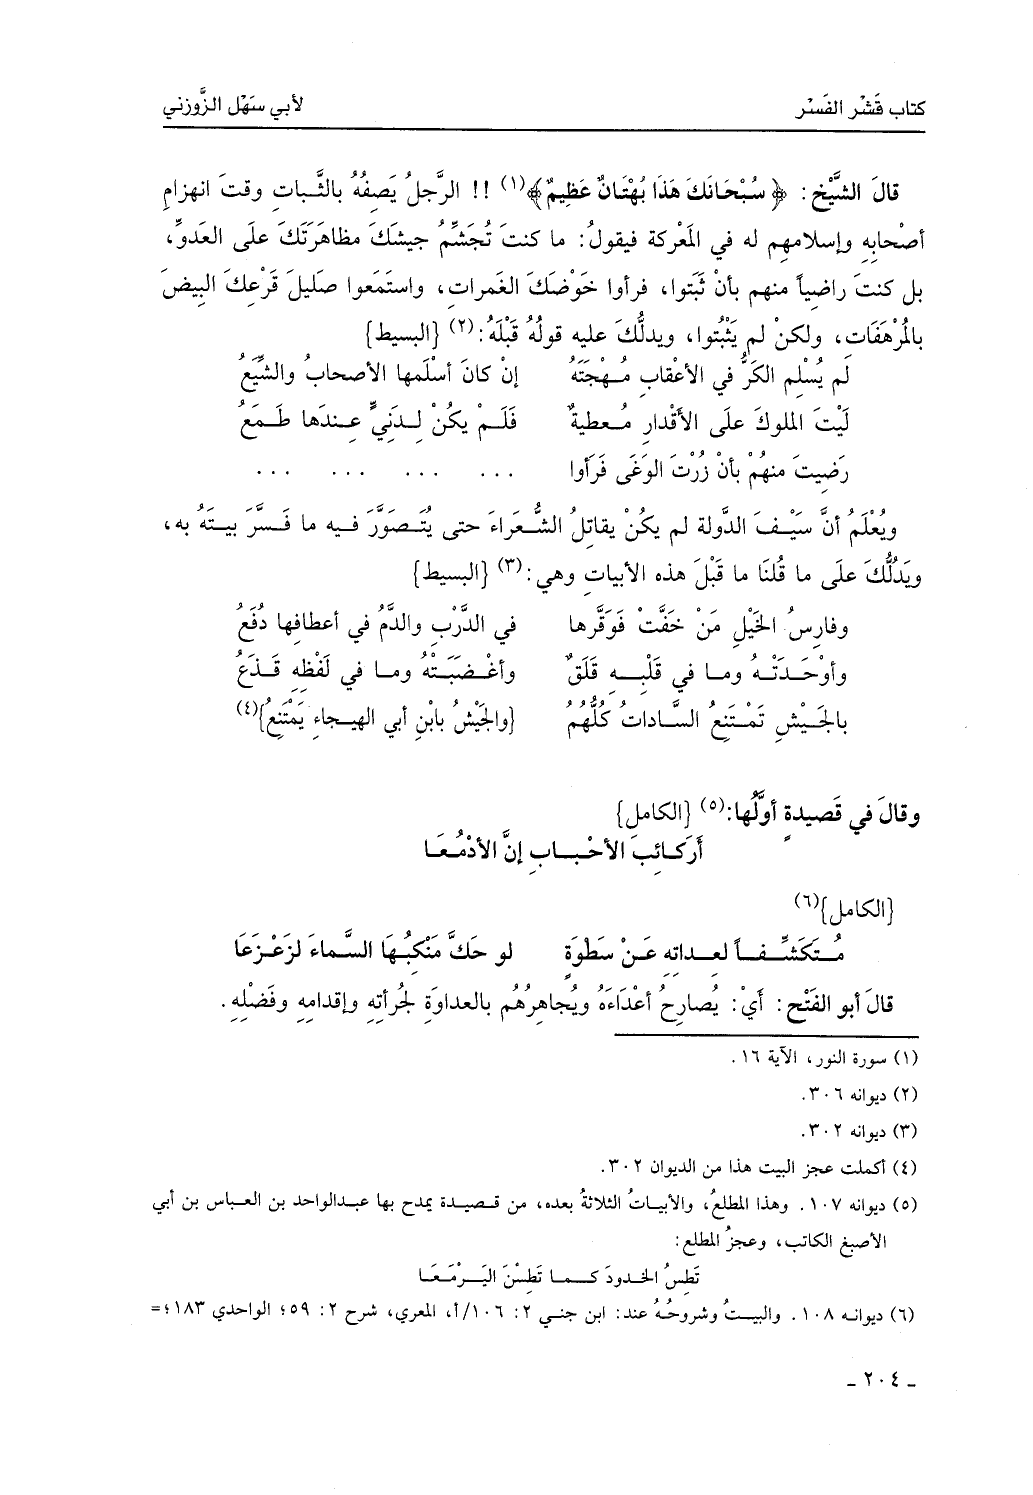 كتاب قَشْر الفَسْر لأبي سَهْل الزَّوزني
قالَ الشَّيْخ: ﴿سُبْحَانَكَ هَذَا بُهْتَانٌ عَظِيمٌ﴾(١) !! الرَّجلُ يَصِفُهُ بالثَّباتِ وقتَ انهزامِ
أصْحابِهِ وإسلامِهِم له في المَعْركة فيقولُ: ما كنتَ تُجَشِّمُ جيشَكَ مظاهَرَتَكَ على العدوِّ،
بل كنتَ راضياً منهم بأنْ ثَبَتوا، فرأوا خَوْضَكَ الغَمراتِ، واستَمَعوا صَليلَ قَرْعِكَ البيضَ
بالمُرْهَفَات، ولكنْ لم يَثْبُتوا، ويدلُّكَ عليه قولُهُ قَبْلَهُ:(٢) {البسيط}
لَم يُسْلِمِ الكَرُّ في الأعْقابِ مُهْجَتَهُ إنْ كانَ أسْلَمها الأصحابُ والشِّيَعُ
لَيْتَ الملوكَ علَى الأقْدارِ مُعطيةٌ فَلَمْ يكُنْ لِدَنيٍّ عِندَها طَمَعُ
رَضِيتَ منهُمْ بأنْ زُرْتَ الوَغَى فَرَأوا ... ... ... ...
ويُعْلَمُ أنَّ سَيْفَ الدَّولة لم يكُنْ يقاتِلُ الشُّعَراءَ حتى يُتَصوَّرَ فيه ما فَسَّرَ بيتَهُ به،
ويَدلُّكَ علَى ما قُلنَا ما قَبْلَ هذه الأبياتِ وهي:(٣) {البسيط}
وفارِسُ الخَيْلِ مَنْ خَفَّتْ فَوَقَّرها في الدَّرْبِ والدَّمُ في أعطافِها دُفَعُ
وأوْحَدَتْهُ وما في قَلْبِهِ قَلَقٌ وأغْضَبَتْهُ وما في لَفْظِهِ قَذَعُ
بالجَيْشِ تَمْتَنِعُ السَّاداتُ كلُّهُمُ {والجَيْشُ بابْنِ أبي الهيجاءِ يَمْتَنِعُ}(٤)
وقالَ في قَصيدةٍ أوَّلُها:(٥) {الكامل}
أرَكَائِبَ الأحْبابِ إنَّ الأدْمُعَا
{الكامل}(٦)
مُتَكَشِّفاً لعداتِهِ عَنْ سَطْوَةٍ لو حَكَّ مَنْكِبُهَا السَّماءَ لَزَعْزَعَا
قالَ أبو الفَتْح: أيْ: يُصارِحُ أعْدَاءَهُ ويُجاهِرُهُم بالعداوَةِ لجُرأتِهِ وإقدامِهِ وفَضْلِهِ.
(١) سورة النور، الآية ١٦.
(٢) ديوانه ٣٠٦.
(٣) ديوانه ٣٠٢.
(٤) أكملت عجز البيت هذا من الديوان ٣٠٢.
(٥) ديوانه ١٠٧. وهذا المطلعُ، والأبياتُ الثلاثةُ بعده، من قصيدة يمدح بها عبدالواحد بن العباس بن أبي
الأصبغ الكاتب، وعجزُ المطلع:
تَطِسُ الخدودَ كما تَطِسْنَ اليَرْمَعَا
(٦) ديوانه ١٠٨. والبيتُ وشروحُهُ عند: ابن جني ٢: ١٠٦/أ، المعري، شرح ٢: ٥٩؛ الواحدي ١٨٣؛=
ـ ٢٠٤ ـ